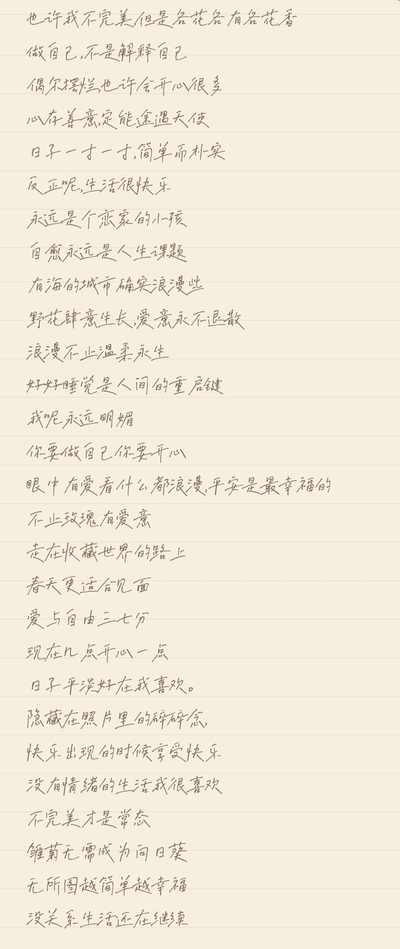 也许我不完美,但是各花各有各花香
做自己,不是解释自己
偶尔摆烂,也许会开心很多
心存善意,定能途遇天使
日子一寸一寸,简单而朴实
反正呢,生活很快乐
永远是个恋家的小孩
自愈永远是人生课题
有海的城市确实浪漫些
野花肆意生长,爱意永不退散
浪漫不止温柔永生
好好睡觉是人间的重启键
我呢永远明媚
你要做自己你要开心
眼中有爱看什么都浪漫,平安是最幸福的
不止玫瑰,有爱意
走在收藏世界的路上
春天更适合见面
爱与自由三七分
现在几点开心一点
日子平淡好在我喜欢。
隐藏在照片里的碎碎念,
快乐出现的时候享受快乐
没有情绪的生活我很喜欢
不完美才是常态
雏菊无需成为向日葵
无所图越简单越幸福
没关系生活还在继续